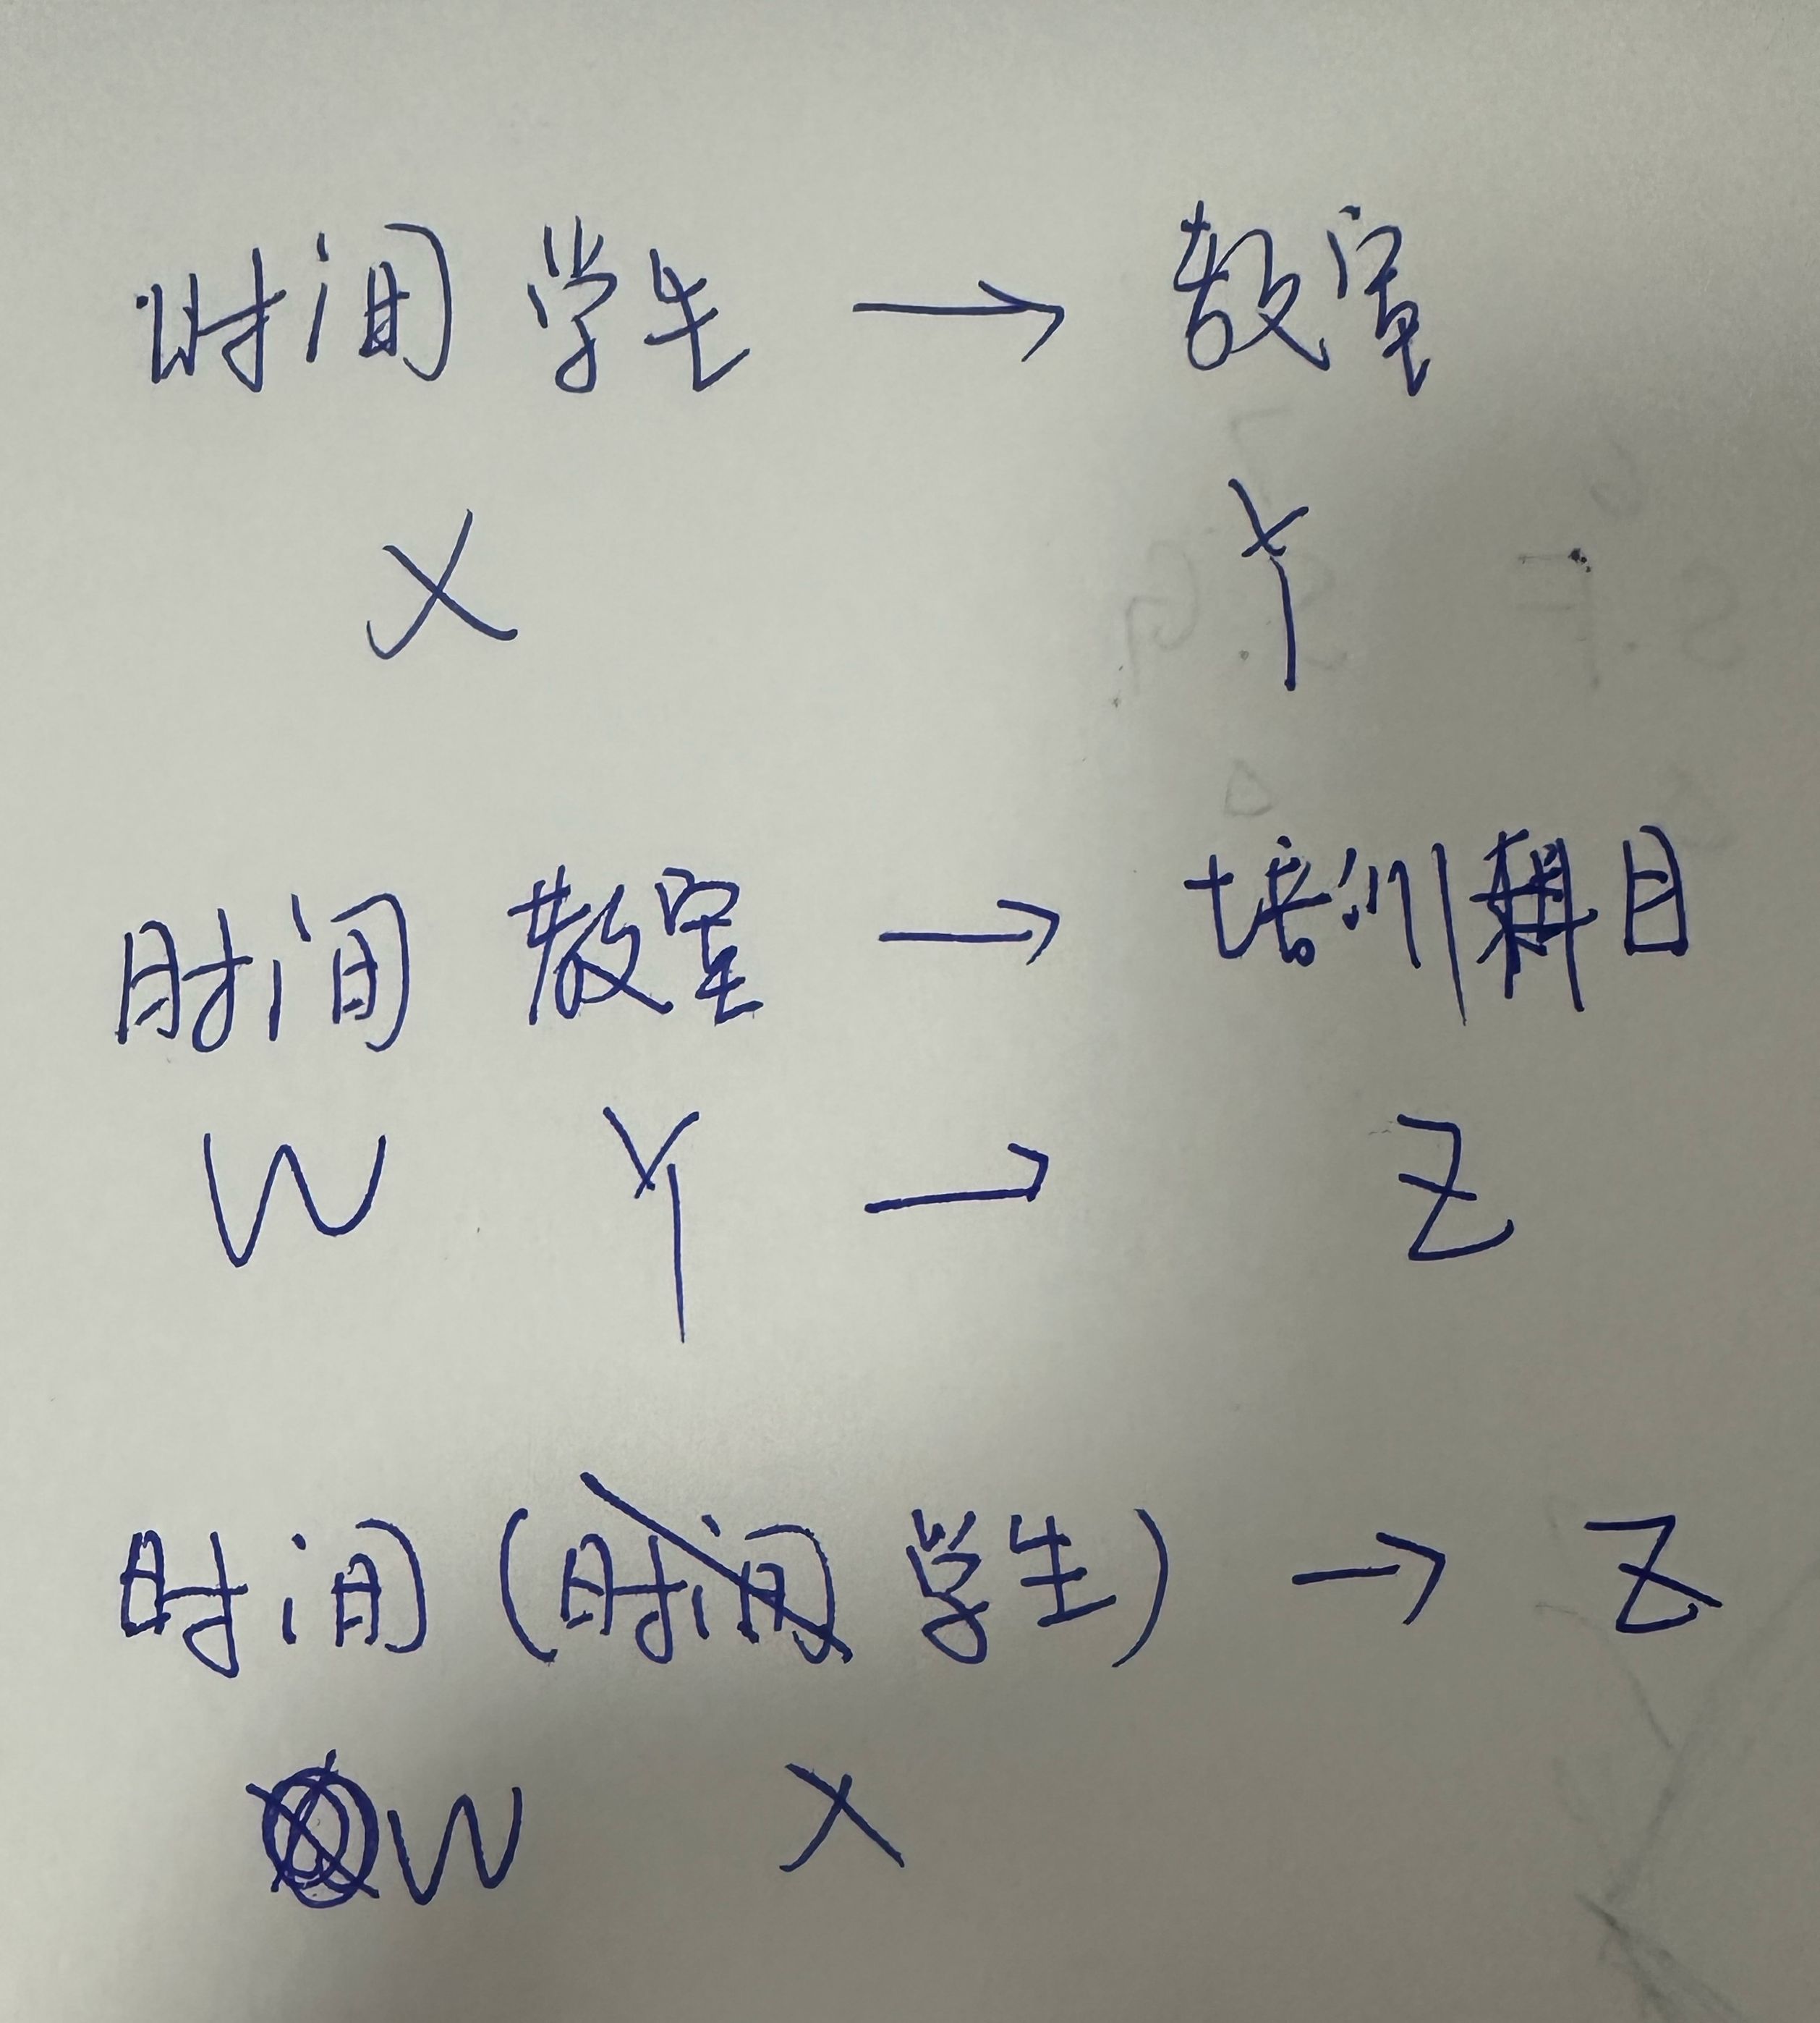 时间 学生 → 教室
X Y
时间 教室 → 培训科目
W Y → Z
时间 (时间 学生) → Z
W X